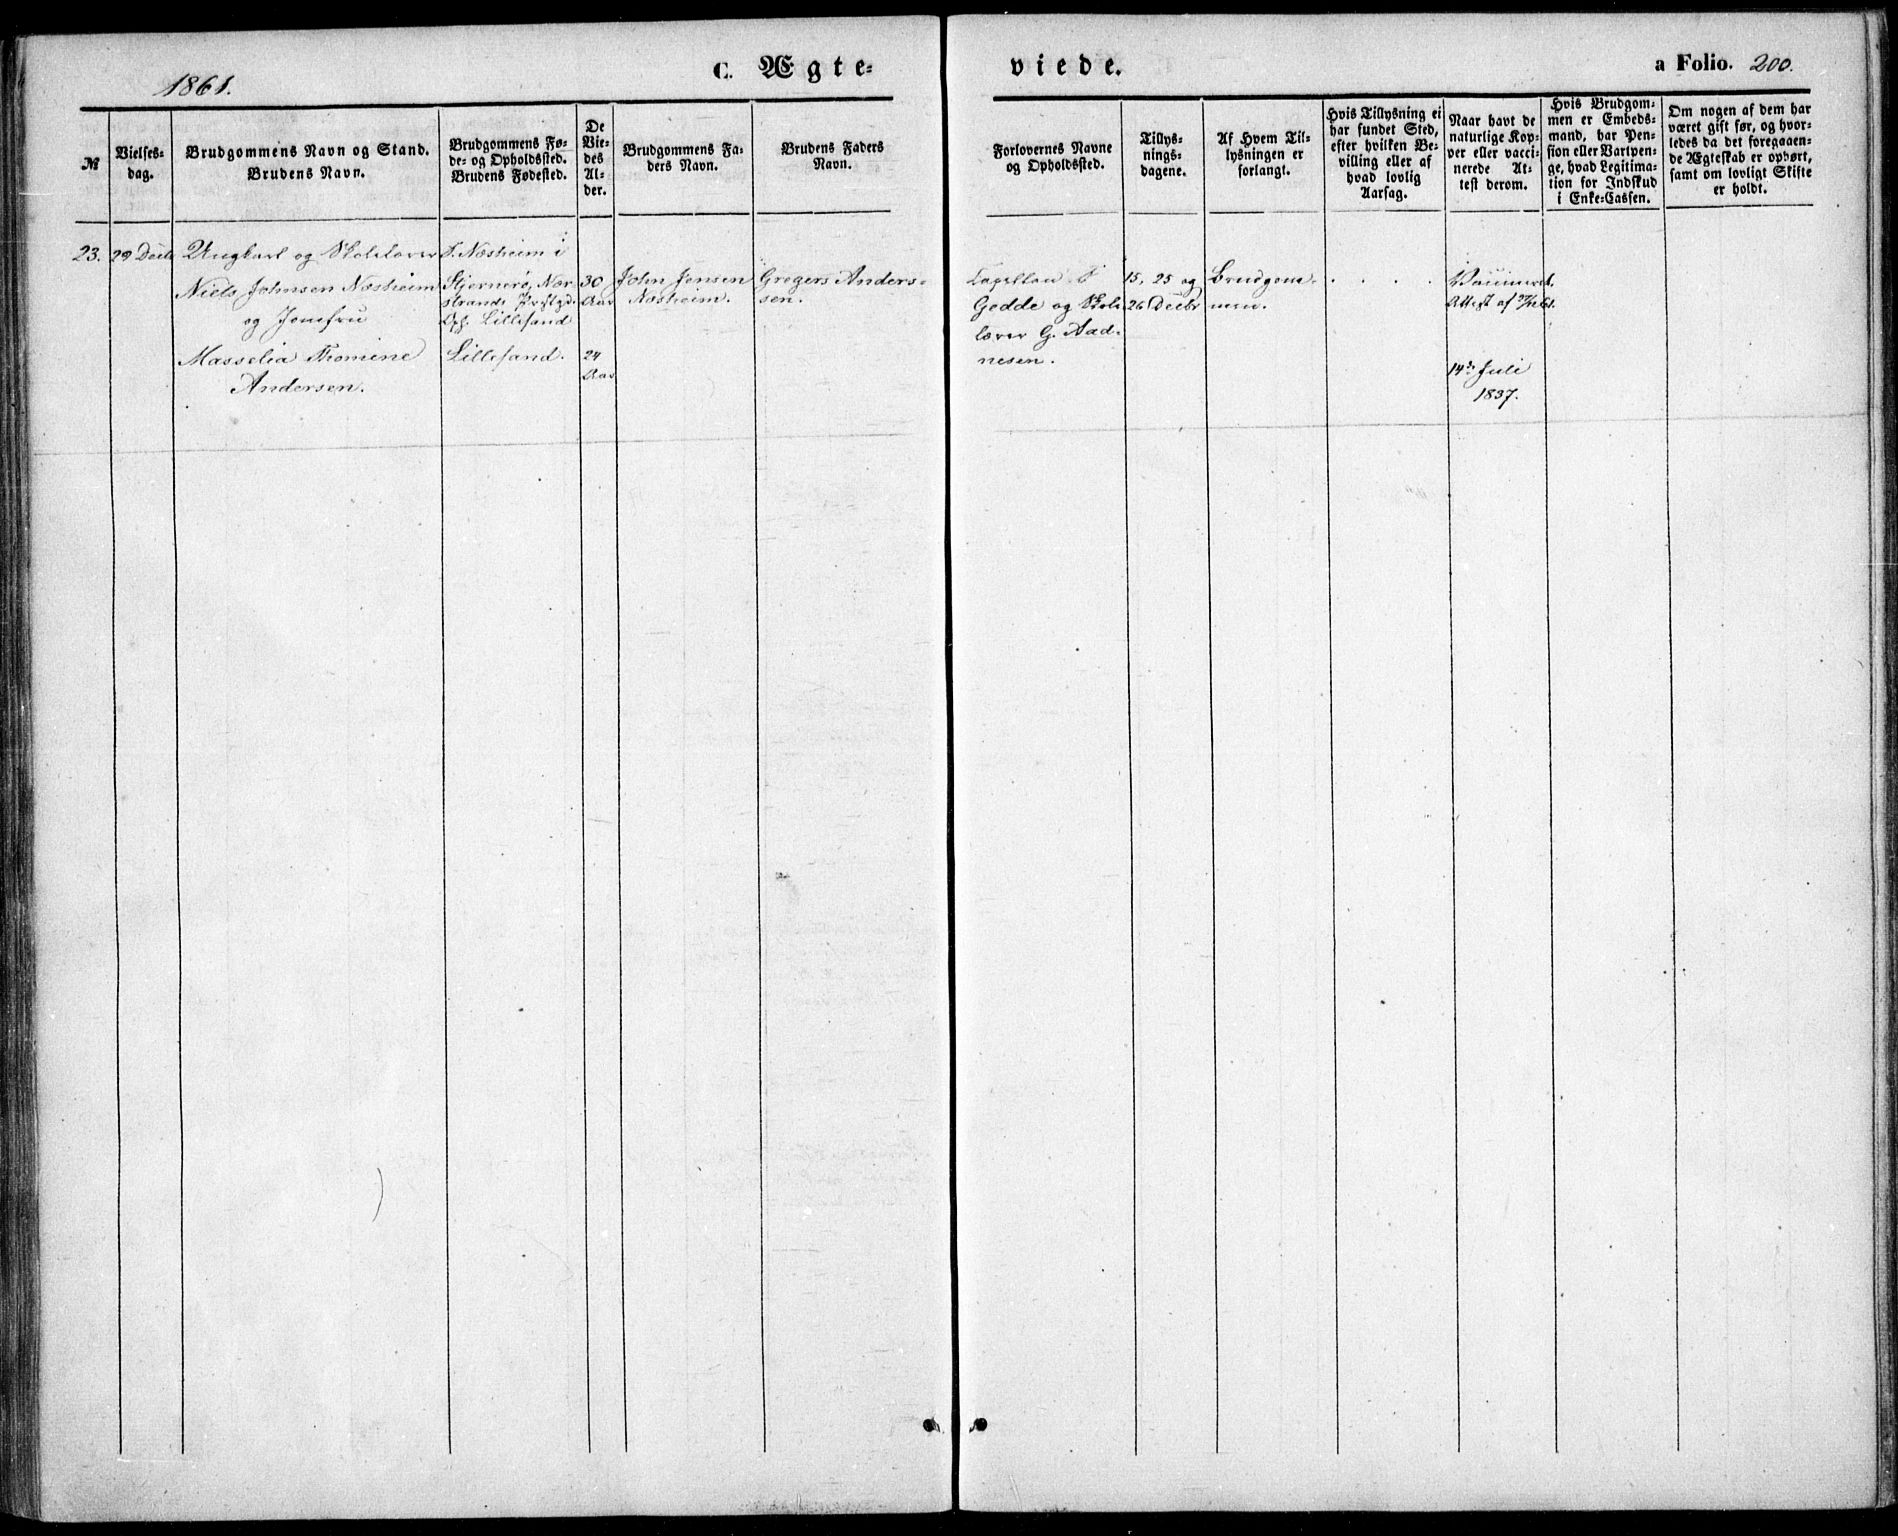 1861.
C. Ægte-
viede.
a Folio. 200.
№
Vielses-
dag.
Brudgommens Navn og Stand.
Brudens Navn.
Brudgommens Fø-
de- og Opholdssted.
Brudens Fødested.
De
Vie-
des
Al-
der.
Brudgommens Fa-
ders Navn.
Brudens Faders
Navn.
Forlovernes Navne
og Opholdssted.
Tillys-
nings-
dagene.
Af Hvem Til-
lysningen er
forlangt.
Hvis Tillysning ei
har fundet Sted,
efter hvilken Be-
villing eller af
hvad lovlig
Aarsag.
Naar havt de
naturlige Kop-
per eller vacci-
nerede At-
test derom.
Hvis Brudgom-
men er Embeds-
mand, har Pen-
sion eller Vartpen-
ge, hvad Legitima-
tion for Indskud
i Enke-Cassen.
Om nogen af dem har
været gift før, og hvor-
ledes da det foregaaen-
de Ægteskab er ophørt,
samt om lovligt Skifte
er holdt.
23.
29 Decbr
Ungkarl og Skolelærer
Niels Johnsen Næsheim
og Jomfru
Masselia Thomine
Andersen.
F. Næsheim i
Stjernerø, Nær-
strands Præstgd.
Oph. Lillesand
Lillesand.
30
Aar
24
Aar
John Jensen
Næsheim.
Gregers Anders-
sen.
Capellan F
Gedde og Skole-
lærer G. Aad-
nesen.
15, 25 og
26 Decbr
Brudgom-
men.
. . . .
Vaccineret.
Attest af
14de Juli
1837.